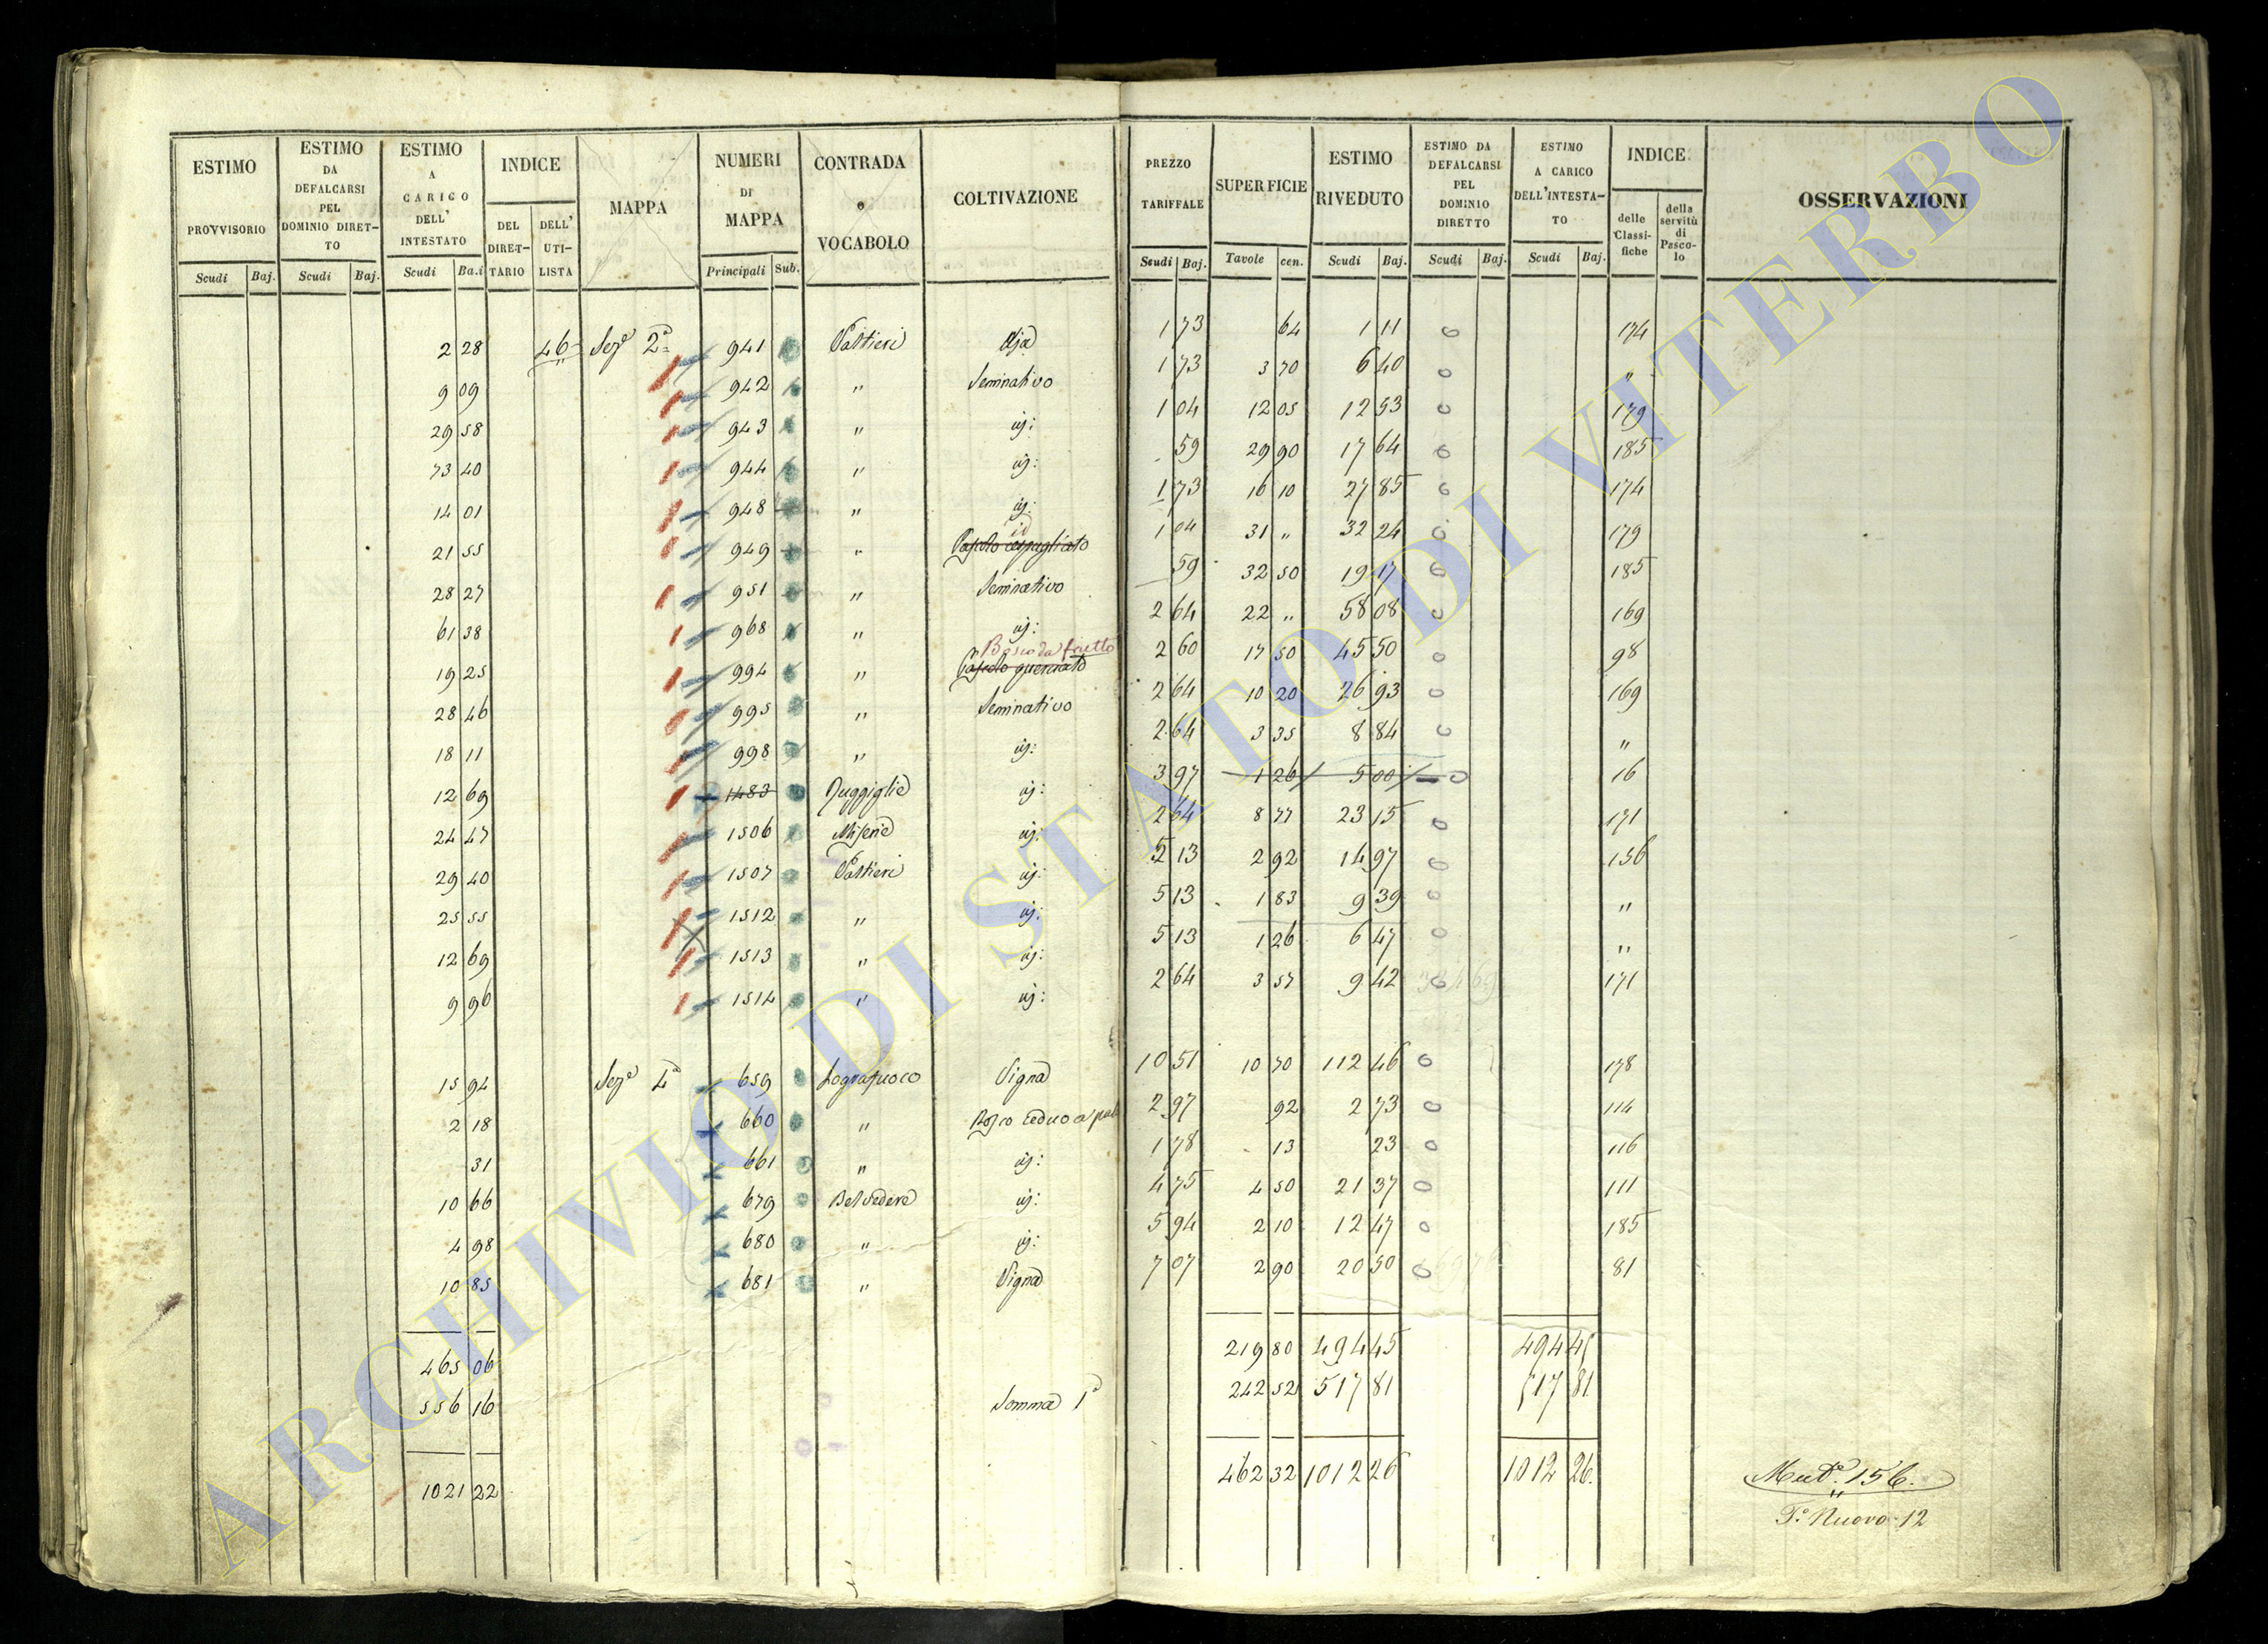 ESTIMO PROVVISORIO Scudi Baj. ESTIMO DA DEFALCARSI PEL DOMINIO DIRET-TO Scudi Baj. ESTIMO A CARICO DELL' INTESTATO Scudi Ba.i INDICE DEL DIRET-TARIO DELL' UTI-LISTA MAPPA NUMERI DI MAPPA Principali Sub. CONTRADA o VOCABOLO COLTIVAZIONE PREZZO TARIFFALE Scudi Baj. SUPERFICIE Tavole cen. ESTIMO RIVEDUTO Scudi Baj. ESTIMO DA DEFALCARSI PEL DOMINIO DIRETTO Scudi Baj. ESTIMO A CARICO DELL'INTESTA-TO Scudi Baj. INDICE delle Classi-fiche della servitù di Pasco-lo OSSERVAZIONI
2 28 46 Seze 2a 941 Pastieri Aja 1 73 64 1 11 0 174
9 09 942 " Seminativo 1 73 3 70 6 40 0 "
29 58 943 " ij: 1 04 12 05 12 53 0 179
73 40 944 " ij: 59 29 90 17 64 0 185
14 01 948 " ij: 1 73 16 10 27 85 0 174
id
21 55 949 " Pascolo cespugliato 1 04 31 " 32 24 0 179
28 27 951 " Seminativo 59 32 50 19 17 0 185
61 38 968 " ij: 2 64 22 " 58 08 0 169
Bosco da frutto
19 25 994 " Pascolo querciato 2 60 17 50 45 50 0 98
28 46 995 " Seminativo 2 64 10 20 26 93 0 169
18 11 998 " ij: 2 64 3 35 8 84 0 "
12 69 1483 ij: 3 97 1 26 5 00 0 16
24 47 1506 ij: 2 64 8 77 23 15 0 171
29 40 1507 Pastieri ij: 5 13 2 92 14 97 0 156
25 55 1512 " ij: 5 13 1 83 9 39 0 "
12 69 1513 " ij: 5 13 1 26 6 47 0 "
9 96 1514 " ij: 2 64 3 57 9 42 0 171
15 94 Seze 4a 659 Lografuoco Vigna 10 51 10 70 112 46 0 178
2 18 660 " Bosco ceduo a 2 97 92 2 73 0 114
31 661 " ij: 1 78 13 23 0 116
10 66 679 Belvedere ij: 4 75 4 50 21 37 0 111
4 98 680 " ij: 5 94 2 10 12 47 0 185
10 85 681 " Vigna 7 07 2 90 20 50 0 81
465 06 219 80 494 45 494 45
556 16 Somma 1a 242 52 517 81 517 81
1021 22 462 32 1012 26 1012 26
Muta. 156.
P.e Nuovo 12
ARCHIVIO DI STATO DI VITERBO